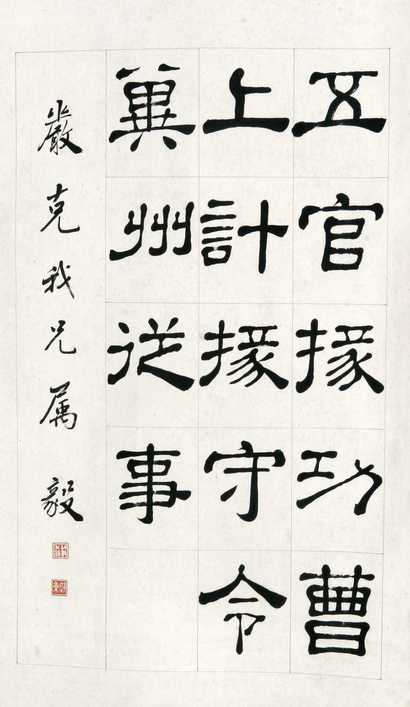 五官掾功曹
上計掾守令
冀州從事
嚴克我兄属毅